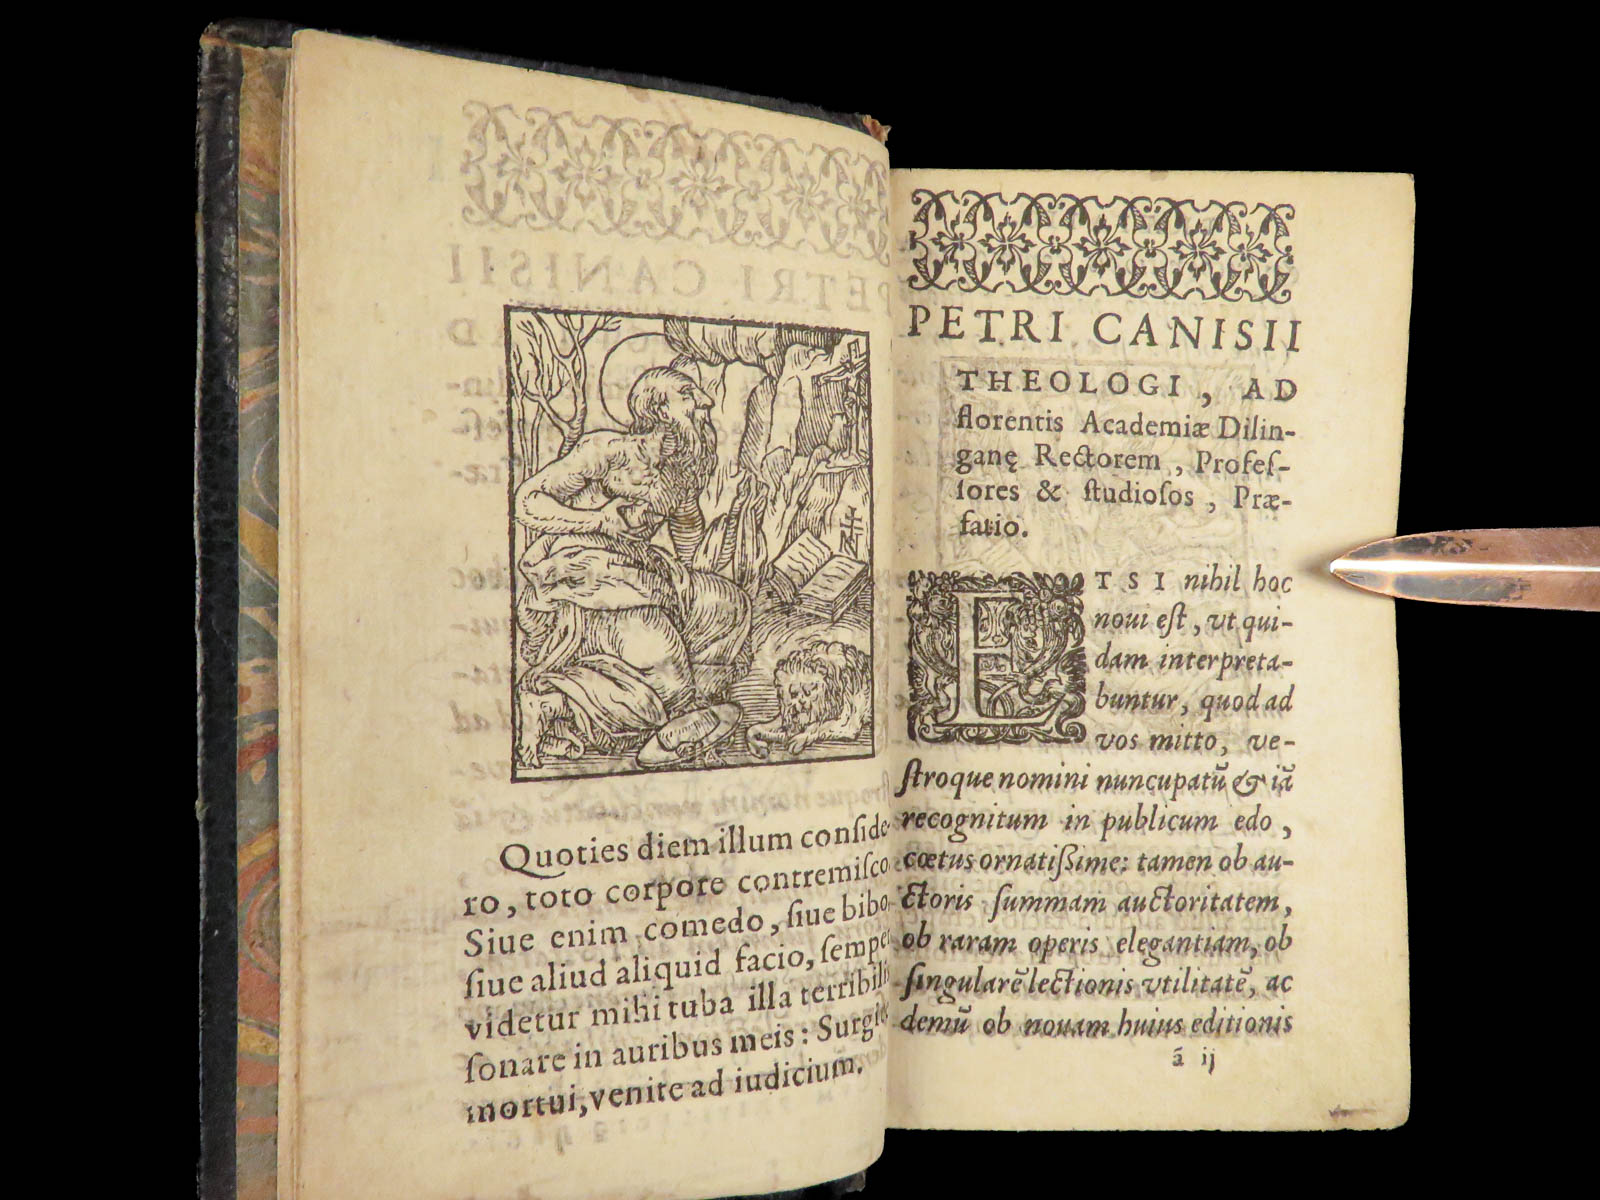 Quoties diem illum conſide-
ro, toto corpore contremiſco.
Siue enim comedo, ſiue bibo,
ſiue aliud aliquid facio, ſemper
videtur mihi tuba illa terribilis
ſonare in auribus meis: Surgite
mortui, venite ad iudicium.
PETRI CANISII
THEOLOGI, AD
florentis Academiæ Dilin-
ganę Rectorem, Profeſ-
ſores & ſtudioſos, Præ-
fatio.
ETSI nihil hoc
noui eſt, vt qui-
dam interpreta-
buntur, quod ad
vos mitto, ve-
ſtroque nomini nuncupatū & iā
recognitum in publicum edo,
cœtus ornatiſſime: tamen ob au-
ctoris ſummam auctoritatem,
ob raram operis elegantiam, ob
ſingularē lectionis vtilitatē, ac
demū ob nouam huius editionis
ā ij